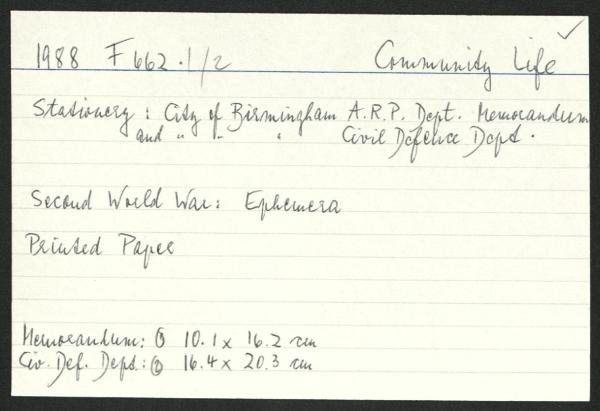 1988 F662.1/2 Community Life ✓
Stationery: City of Birmingham A.R.P. Dept. Memorandum
and " " " Civil Defence Dept.
Second World War: Ephemera
Printed Paper
Memorandum: ① 10.1 x 16.2 cm
Civ. Def. Dept.: ② 16.4 x 20.3 cm